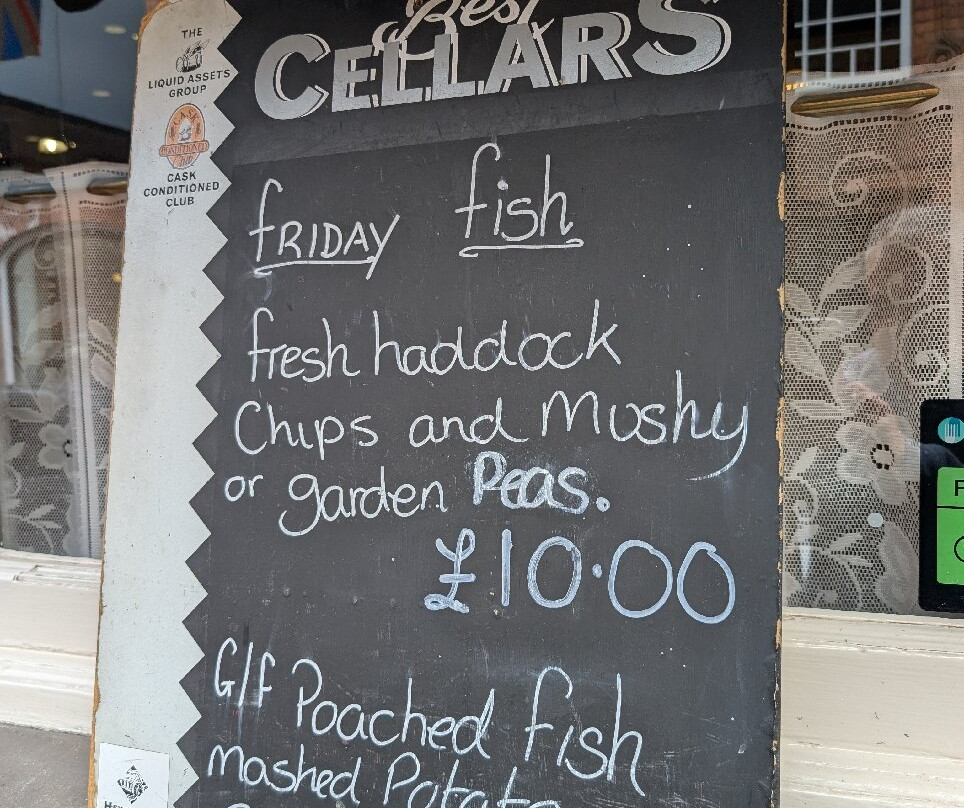 Best
CELLARS
THE
LIQUID ASSETS
GROUP
CASK
CONDITIONED
CLUB
fRIDAY fish
fresh haddock
Chips and Mushy
or garden Peas.
£10.00
G/f Poached fish
mashed Potato